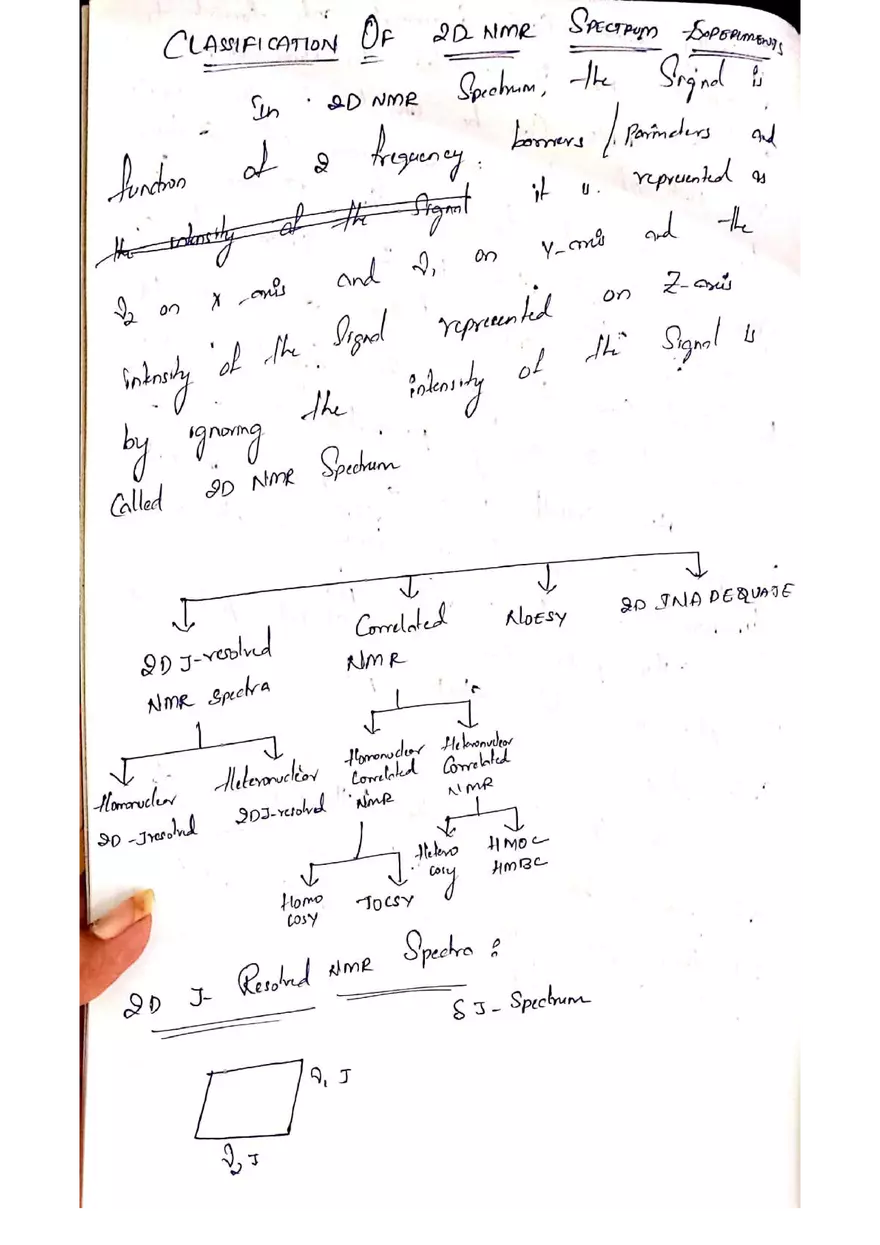 CLASSIFICATION OF 2D NMR SPECTRUM EXPERIMENTS
In 2D NMR Spectrum, the Signal is
function of 2 frequency domains / Parimeters and
the intensity of the Signal it is represented as
ν2 on X-axis and ν1 on Y-axis and the
intensity of the Signal represented on Z-axis
by ignoring the intensity of the Signal is
Called 2D NMR Spectrum
2D J-resolved
NMR Spectra
Correlated
NMR
NOESY
2D INADEQUATE
Homonuclear
2D-Jresolved
Heteronuclear
2DJ-resolved
Homonuclear
Correlated
NMR
Heteronuclear
Correlated
NMR
Homo
COSY
TOCSY
Hetero
cosy
HMQC
HMBC
2D J- Resolved NMR Spectra :
δ J- Spectrum
ν1 J
ν2 J